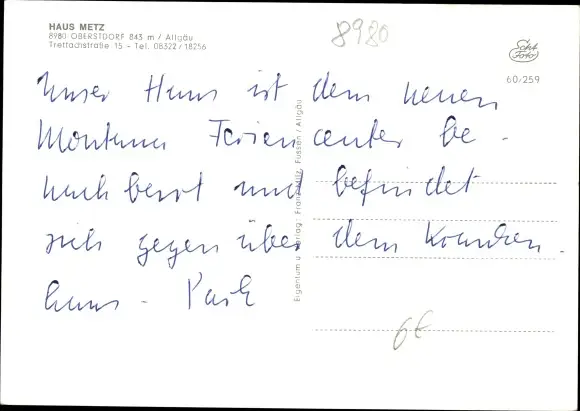 HAUS METZ
8980 OBERSTDORF 843 m / Allgäu
Trettachstraße 15 - Tel. 08322/18256
8980
Schö Foto
60/259
Unser Haus ist dem neuen
Montana Feriencenter be-
nachbart und befindet
sich gegenüber dem Kranken-
haus - Park
Eigentum u. Verlag: Franz Milz, Füssen / Allgäu
6€